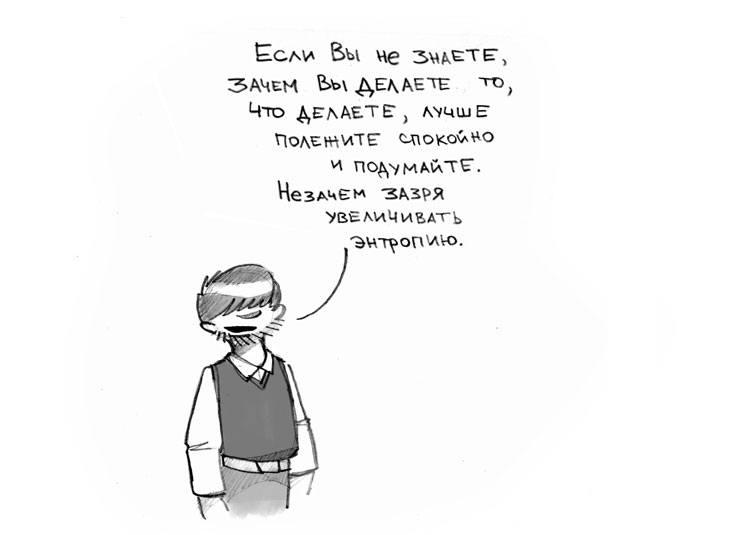 Если Вы не знаете,
зачем Вы делаете то,
что делаете, лучше
полежите спокойно
и подумайте.
Незачем зазря
увеличивать
энтропию.